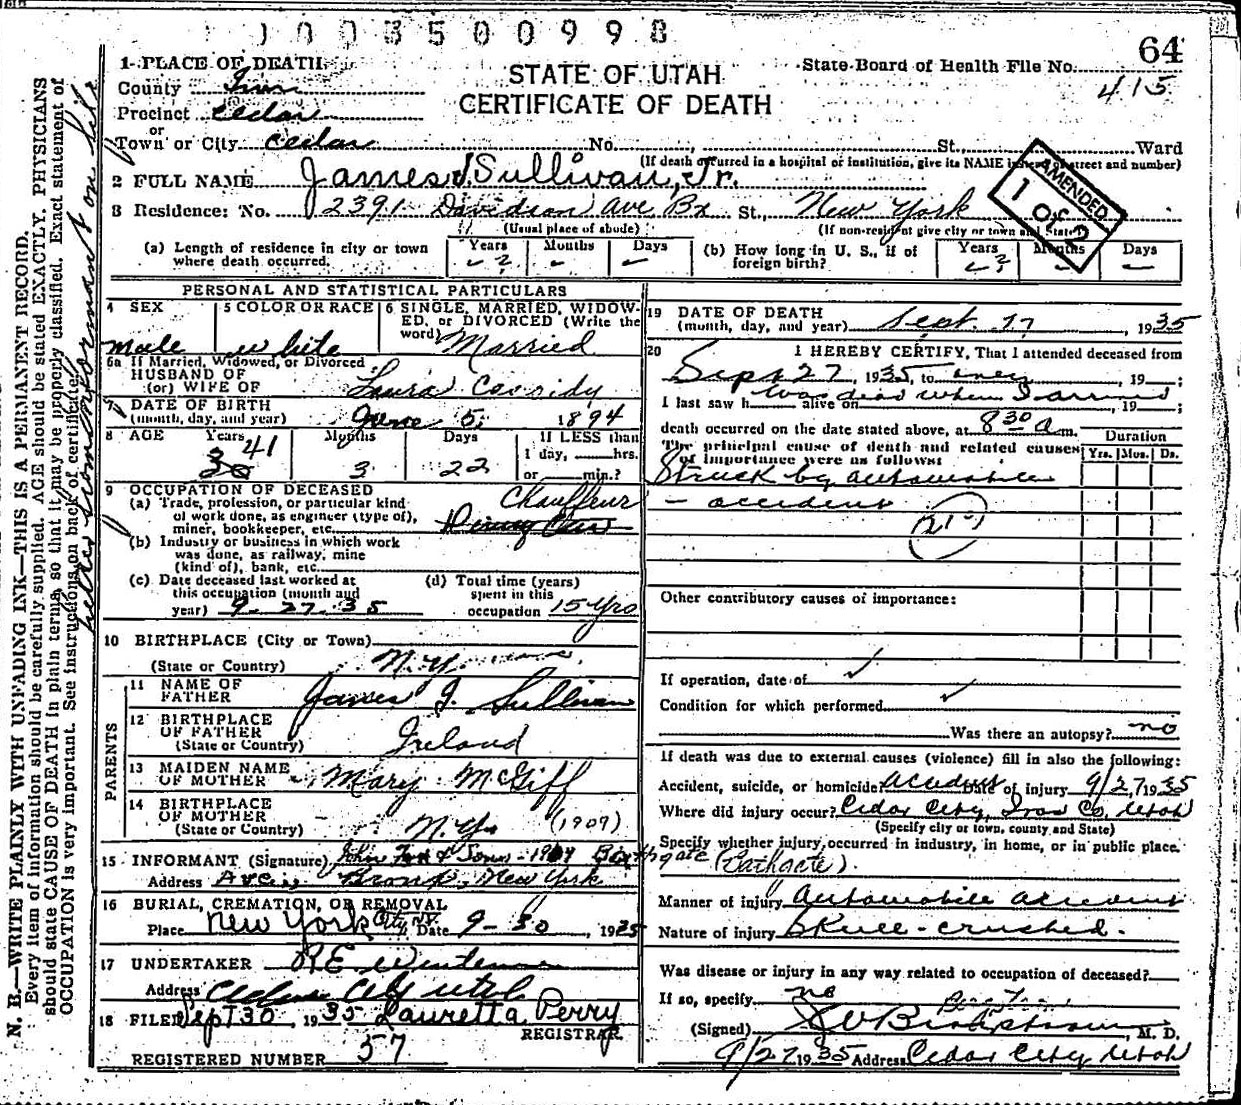 1003500998
64
1 PLACE OF DEATH
STATE OF UTAH
State Board of Health File No.
County Iron
CERTIFICATE OF DEATH
415
Precinct Cedar
or
Town or City Cedar No. , St., Ward
(If death occurred in a hospital or institution, give its NAME instead of street and number)
AMENDED
1 OF 2
2 FULL NAME James J. Sullivan, Jr.
3 Residence: No. 2391 Davidson Ave Bx St., New York
(Usual place of abode) (If non-resident give city or town and State)
(a) Length of residence in city or town where death occurred. Years Months Days
(b) How long in U. S., if of foreign birth? Years Months Days
PERSONAL AND STATISTICAL PARTICULARS
4 SEX male
5 COLOR OR RACE white
6 SINGLE, MARRIED, WIDOWED, or DIVORCED (Write the word) Married
6a If Married, Widowed, or Divorced
HUSBAND OF
(or) WIFE OF Laura Cassidy
7 DATE OF BIRTH
(month, day, and year) June 5, 1894
8 AGE Years Months Days If LESS than
41 3 22 1 day, hrs.
or min.?
9 OCCUPATION OF DECEASED
(a) Trade, profession, or particular kind of work done, as engineer (type of), miner, bookkeeper, etc. Chauffeur
(b) Industry or business in which work was done, as railway, mine (kind of), bank, etc.
(c) Date deceased last worked at this occupation (month and year) 9-27-35
(d) Total time (years) spent in this occupation 15 yrs
10 BIRTHPLACE (City or Town)
(State or Country) N.Y.
PARENTS
11 NAME OF FATHER James J. Sullivan
12 BIRTHPLACE OF FATHER
(State or Country) Ireland
13 MAIDEN NAME OF MOTHER Mary McGiff
14 BIRTHPLACE OF MOTHER
(State or Country) N.Y. (1909)
15 INFORMANT (Signature) John Fox & Sons - 1909 Bathgate (Bathgate).
Address Ave., Bronx, New York
16 BURIAL, CREMATION, OR REMOVAL
Place New York City N.Y. Date 9-30, 1935
17 UNDERTAKER R E
Address Cedar City Utah
18 FILED Sept 30, 1935 Lauretta Perry
REGISTRAR.
REGISTERED NUMBER 57
19 DATE OF DEATH
(month, day, and year) Sept. 27, 1935
20 I HEREBY CERTIFY, That I attended deceased from
Sept 27, 1935, to , 19 ;
I last saw h alive on , 19 ;
was dead when I arrived
death occurred on the date stated above, at 8 30 a m.
The principal cause of death and related causes of importance were as follows:
Duration
Yrs. Mos. Ds.
Struck by automobile
- accident
Other contributory causes of importance:
If operation, date of
Condition for which performed
Was there an autopsy? no
If death was due to external causes (violence) fill in also the following:
Accident, suicide, or homicide? Accident Date of injury 9/27, 1935
Where did injury occur? Cedar City, Iron Co, Utah
(Specify city or town, county and State)
Specify whether injury occurred in industry, in home, or in public place.
Manner of injury Automobile accident
Nature of injury Skull - crushed.
Was disease or injury in any way related to occupation of deceased?
If so, specify no
(Signed) , M. D.
9/27 1935 Address Cedar City Utah
N. B.—WRITE PLAINLY WITH UNFADING INK—THIS IS A PERMANENT RECORD.
Every item of information should be carefully supplied. AGE should be stated EXACTLY. PHYSICIANS
should state CAUSE OF DEATH in plain terms, so that it may be properly classified. Exact statement of
OCCUPATION is very important. See instructions on back of certificate.